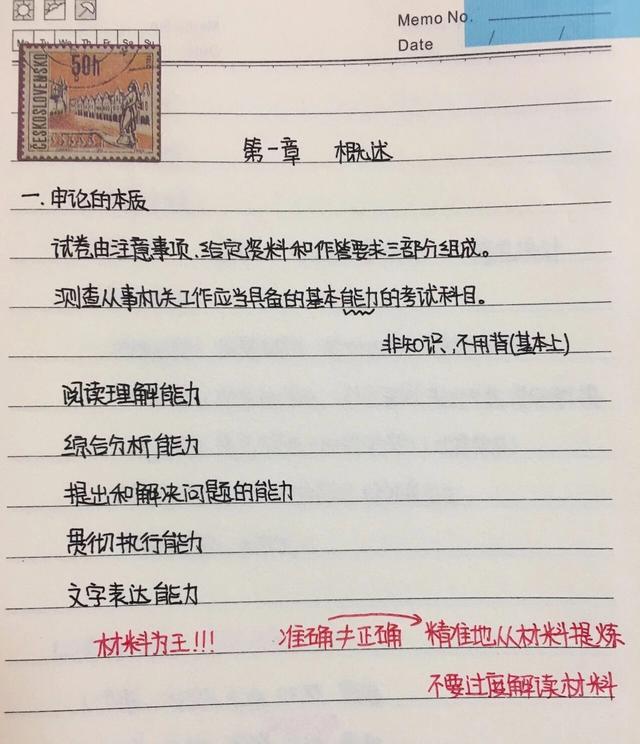 Memo No.
Date
Mo Tu We Th Fr Sa Su
50h
ČESKOSLOVENSKO
第一章 概述
一.申论的本质
试卷由注意事项、给定资料和作答要求三部分组成。
测查从事机关工作应当具备的基本能力的考试科目。
非知识,不用背(基本上)
阅读理解能力
综合分析能力
提出和解决问题的能力
贯彻执行能力
文字表达能力
材料为王!!! 准确≠正确 精准地从材料提炼
不要过度解读材料